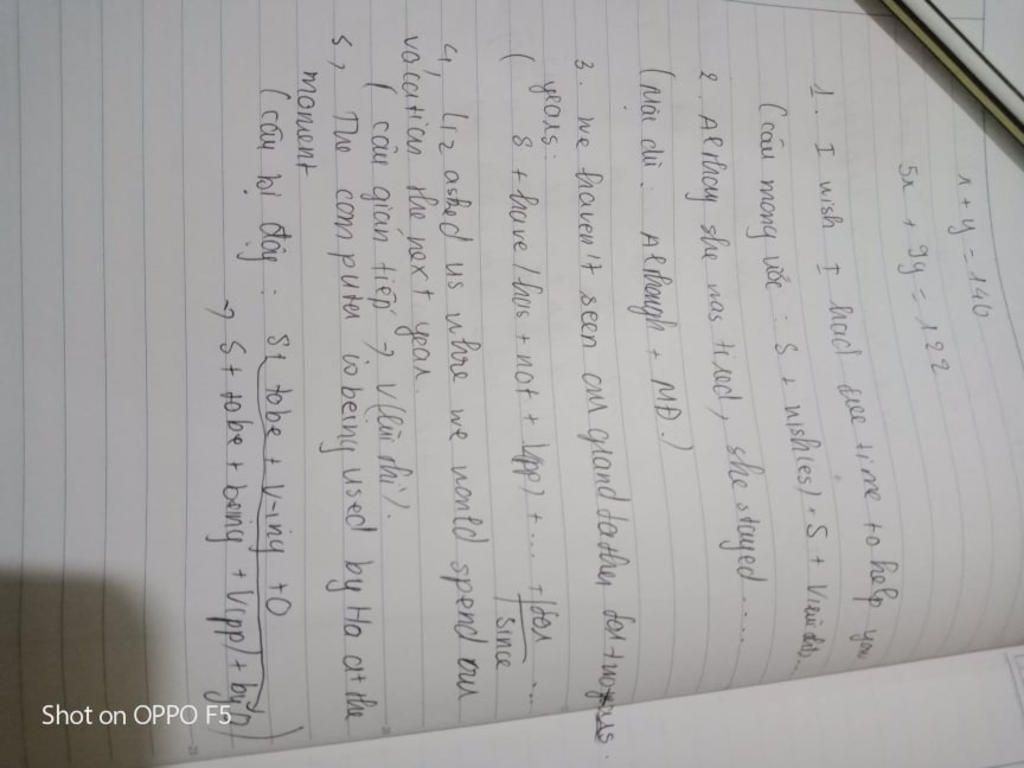 x + y = 140
5x + 9y = 122
1. I wish I had free time to help you
(câu mong ước: S + wish(es) + S + V lùi thì...
2. Althoy she was tired, she stayed .....
(Mặc dù: Although + MĐ.)
3. We haven't seen our grandfather for two years.
years.
( S + have/has + not + Vpp) + ... + for ...
since
4, Liz asked us where we would spend our
vacation the next year.
( câu gián tiếp → V(lùi thì).
5, The computer is being used by Ha at the
moment
(câu bị động: S + tobe + V-ing + O
→ S + tobe + being + V(pp) + by O)
Shot on OPPO F5